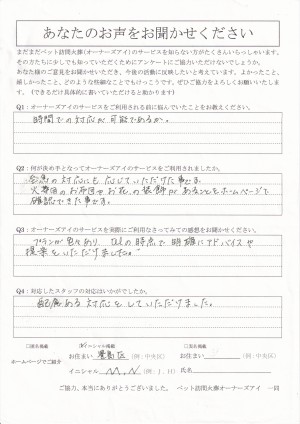 あなたのお声をお聞かせください
まだまだペット訪問火葬(オーナーズアイ)のサービスを知らない方がたくさんいらっしゃいます。
その方たちに少しでも知っていただくためにアンケートにご協力いただけないでしょうか。
あなた様のご意見をお聞かせいただき、今後の活動に反映したいと考えています。よかったこと、
嬉しかったこと、どのような些細なことでもけっこうです。ぜひご協力をよろしくお願いいたしま
す。(できるだけ具体的に書いていただけると助かります)
Q1：オーナーズアイのサービスをご利用される前に悩んでいたことをお教えください。
時間での対応が可能であるか。
Q2：何が決め手となってオーナーズアイのサービスをご利用されましたか。
の対応にも応じていただけた事です。
火葬後のお弁当やお花の装飾があることをホームページで
確認できた事です。
Q3：オーナーズアイのサービスを実際にご利用なさってみての感想をお聞かせください。
プランが色々あり、の時点で明確にアドバイスや
提案をいただけました。
Q4：対応したスタッフの対応はいかがでしたか。
配慮ある対応をしていただけました。
イニシャル掲載
ホームページでご紹介
お住まい 豊島区 (例:中央区)
お住まい (例:中央区)
イニシャル M.N (例:J.H)
氏名
ご協力、本当にありがとうございました。 ペット訪問火葬オーナーズアイ 一同